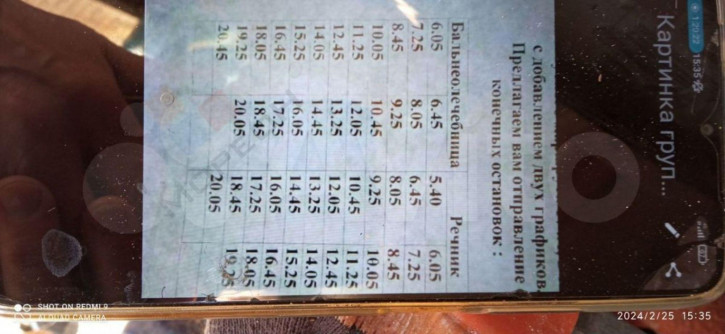 1:20:22 15:35
Картинка груп...
с добавлением двух графиков
Предлагаем вам отправление
конечных остановок :
Бальнеолечебница Речник
6.05 6.45 5.40 6.05
7.25 8.05 6.45 7.25
8.45 9.25 8.05 8.45
10.05 10.45 9.25 10.05
11.25 12.05 10.45 11.25
12.45 13.25 12.05 12.45
14.05 14.45 13.25 14.05
15.25 16.05 14.45 15.25
16.45 17.25 16.05 16.45
18.05 18.45 17.25 18.05
19.25 20.05 18.45 19.25
20.45 20.05
SHOT ON REDMI 9
AI QUAD CAMERA
2024/2/25 15:35